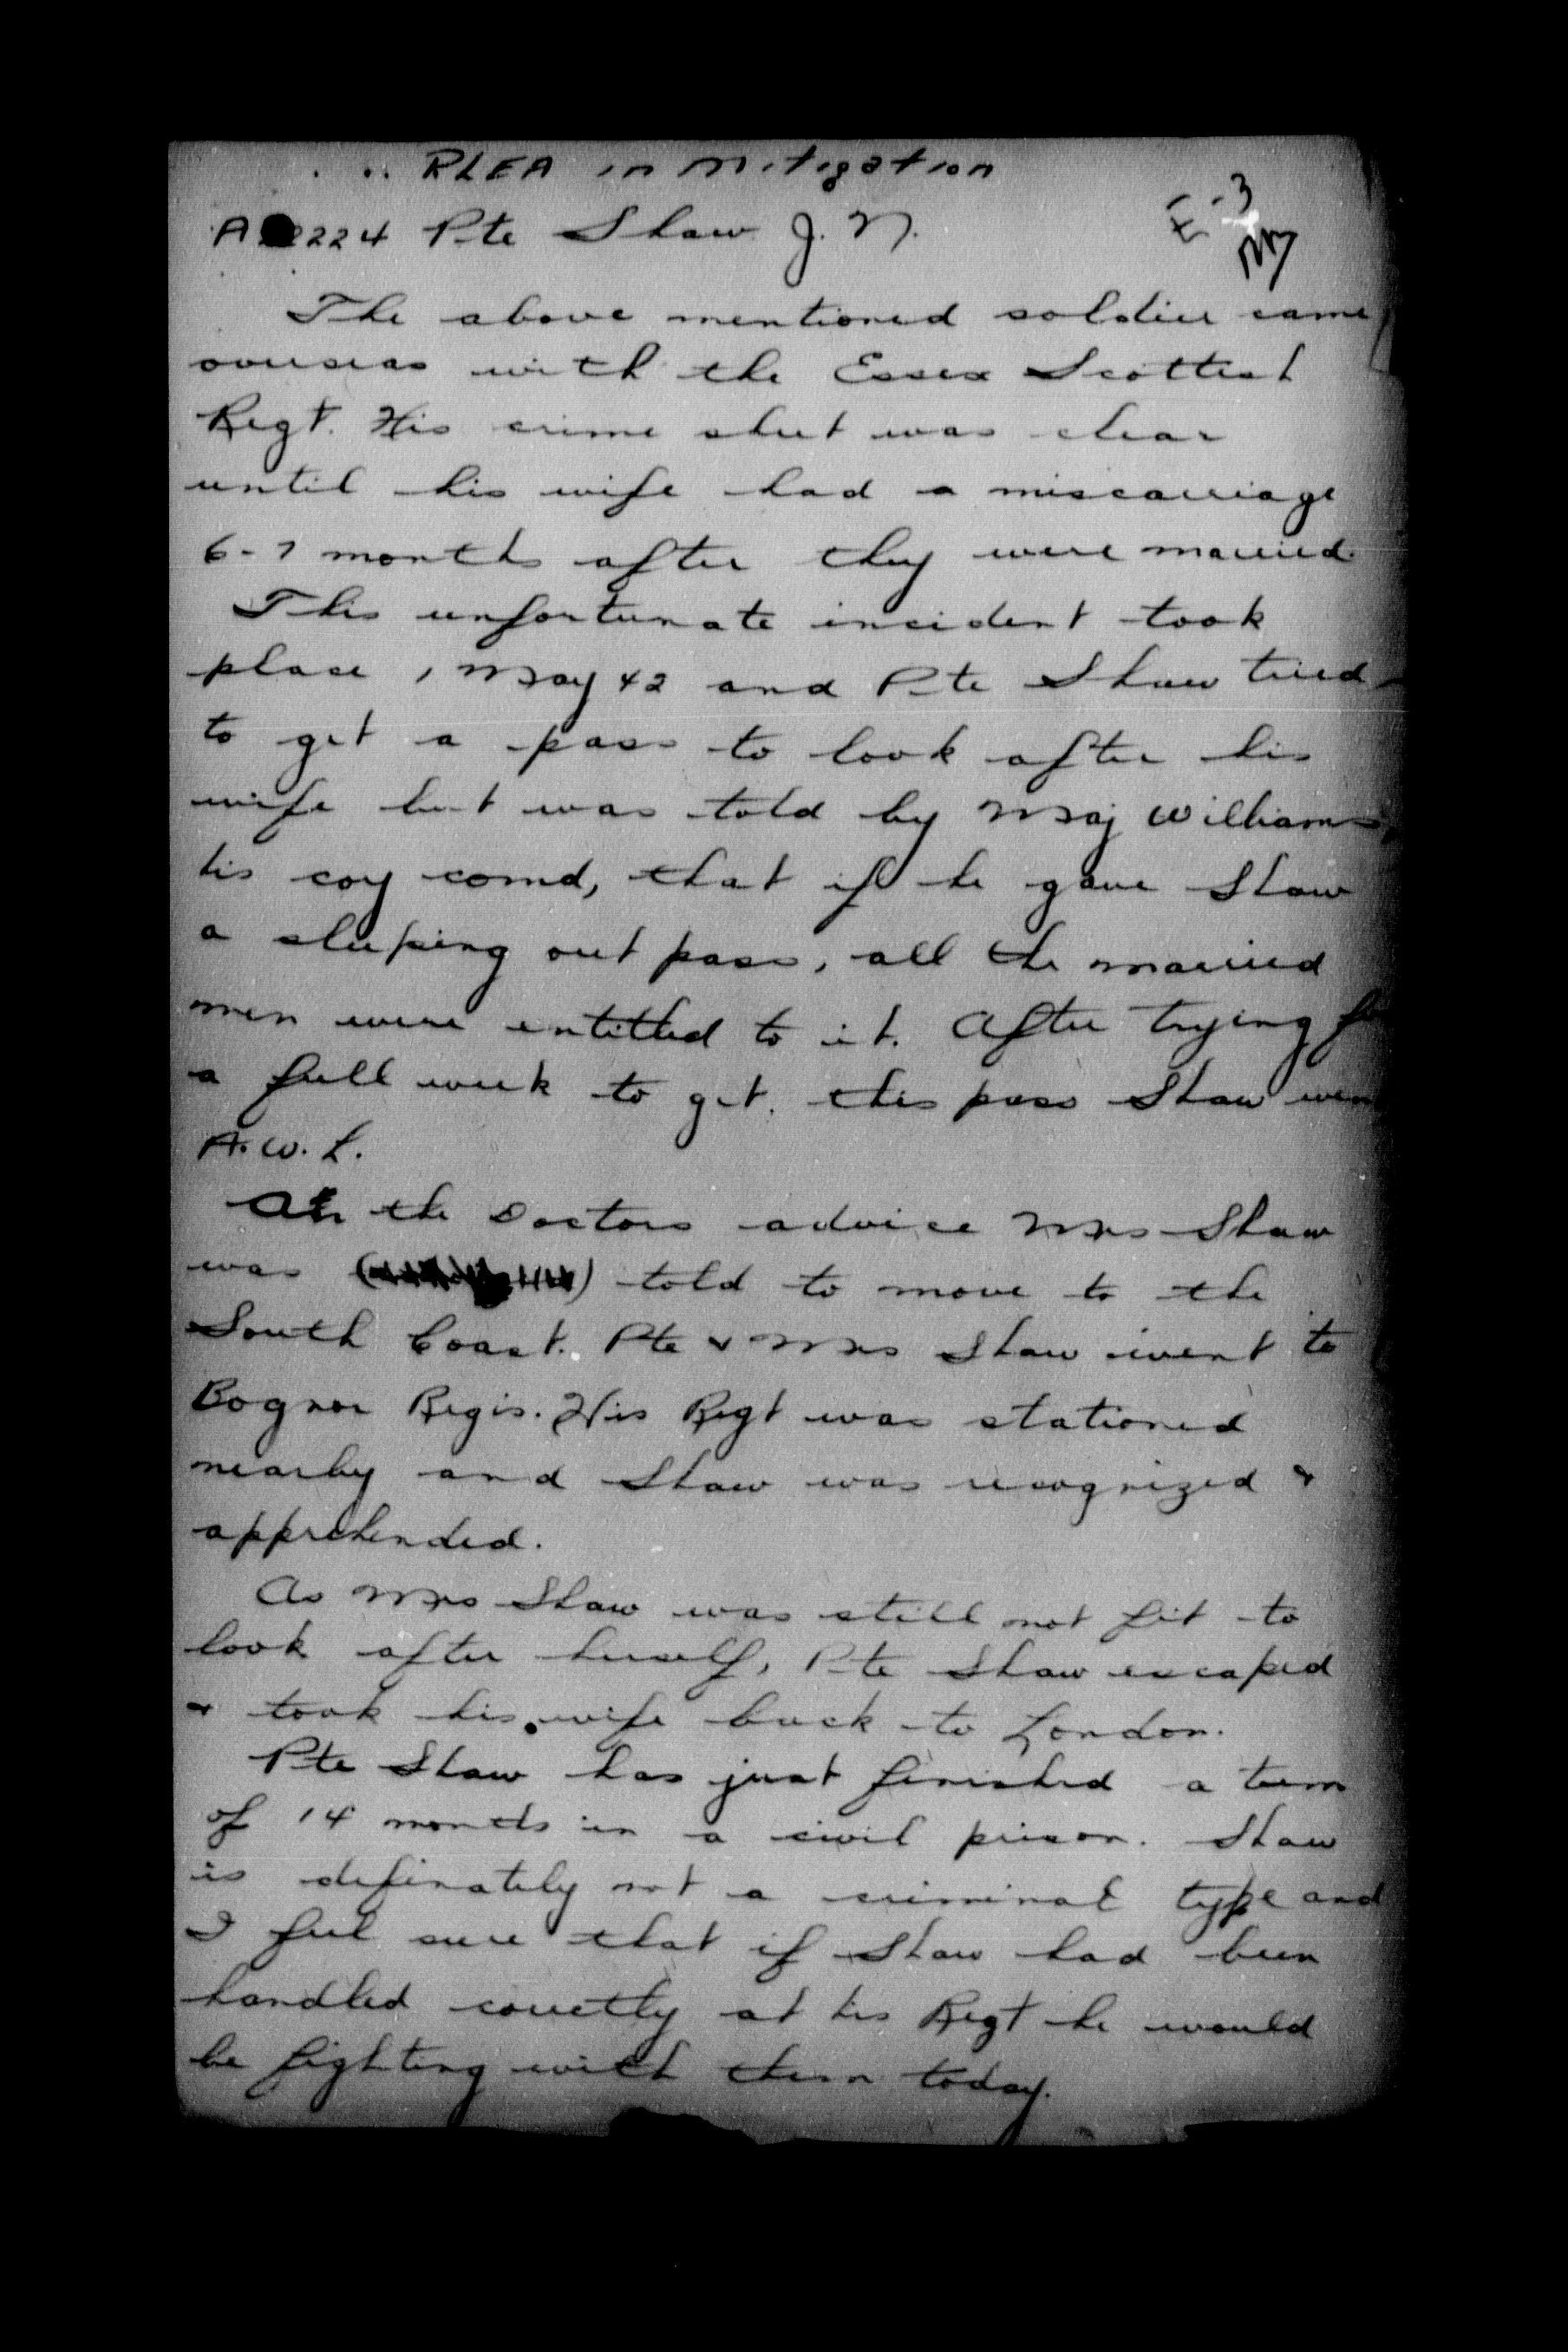 PLEA in Mitigation
E-3
A 224 Pte Shaw J. N.
The above mentioned soldier came
overseas with the Essex Scottish
Regt. His crime sheet was clear
until his wife had a miscarriage
6-7 months after they were married.
This unfortunate incident took
place, May 42 and Pte Shaw tried
to get a pass to look after his
wife but was told by Maj Williams,
his coy comd, that if he gave Shaw
a sleeping out pass, all the married
men were entitled to it. After trying for
a full week to get this pass Shaw went
A.W.L.
On the Doctors advice Mrs Shaw
was ( ) told to move to the
South Coast. Pte & Mrs Shaw went to
Bognor Regis. His Regt was stationed
nearby and Shaw was recognized &
apprehended.
As Mrs Shaw was still not fit to
look after herself, Pte Shaw escaped
& took his wife back to London.
Pte Shaw has just finished a term
of 14 months in a civil prison. Shaw
is definately not a criminal type and
I feel sure that if Shaw had been
handled correctly at his Regt he would
be fighting with them today.